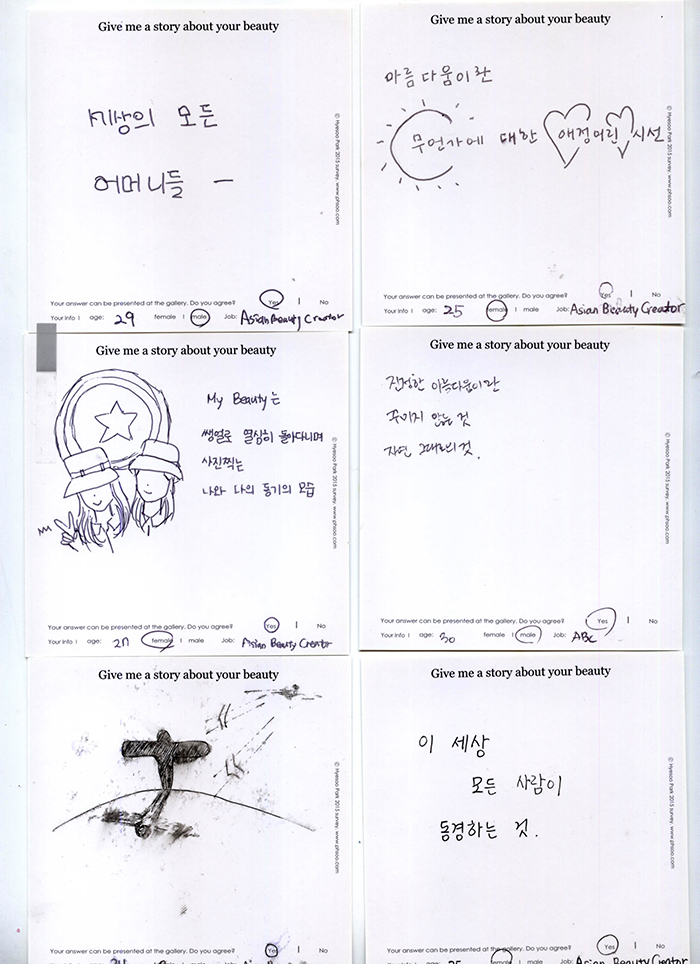 Give me a story about your beauty
세상의 모든
어머니들 —
© Hyesoo Park 2015 survey, www.phsoo.com
Your answer can be presented at the gallery. Do you agree? Yes | No
Your info | age: 29 female | male Job: Asian Beauty Creator
Give me a story about your beauty
아름다움이란
무언가에 대한 애정어린 시선
© Hyesoo Park 2015 survey, www.phsoo.com
Your answer can be presented at the gallery. Do you agree? Yes | No
Your info | age: 25 female | male Job: Asian Beauty Creator
Give me a story about your beauty
My Beauty는
쌩얼로 열심히 돌아다니며
사진찍는
나와 나의 동기의 모습
© Hyesoo Park 2015 survey, www.phsoo.com
Your answer can be presented at the gallery. Do you agree? Yes | No
Your info | age: 27 female | male Job: Asian Beauty Creator
Give me a story about your beauty
진정한 아름다움이란
꾸미지 않는 것
자연 그대로의 것.
© Hyesoo Park 2015 survey, www.phsoo.com
Your answer can be presented at the gallery. Do you agree? Yes | No
Your info | age: 30 female | male Job: ABC
Give me a story about your beauty
© Hyesoo Park 2015 survey, www.phsoo.com
Your answer can be presented at the gallery. Do you agree? Yes | No
Give me a story about your beauty
이 세상
모든 사람이
동경하는 것.
© Hyesoo Park 2015 survey, www.phsoo.com
Your answer can be presented at the gallery. Do you agree? Yes | No
female | male Job: Asian Beauty Creator